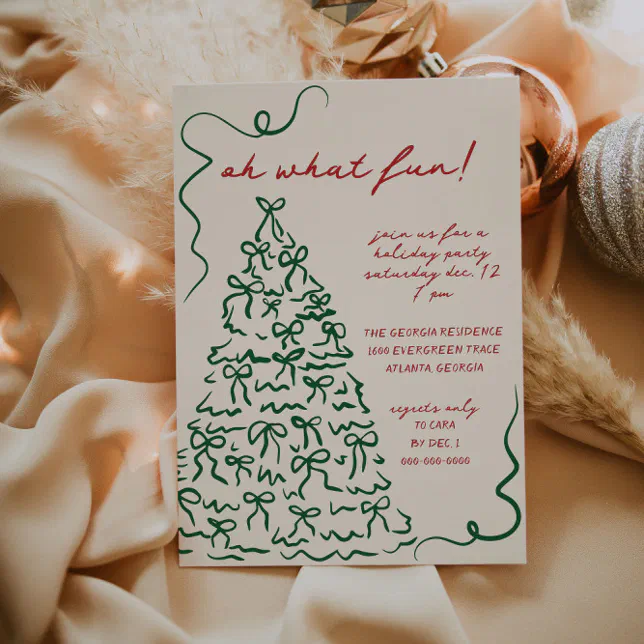 oh what fun!
join us for a
holiday party
saturday dec. 12
7 pm
THE GEORGIA RESIDENCE
1600 EVERGREEN TRACE
ATLANTA, GEORGIA
regrets only
TO CARA
BY DEC. 1
000-000-0000